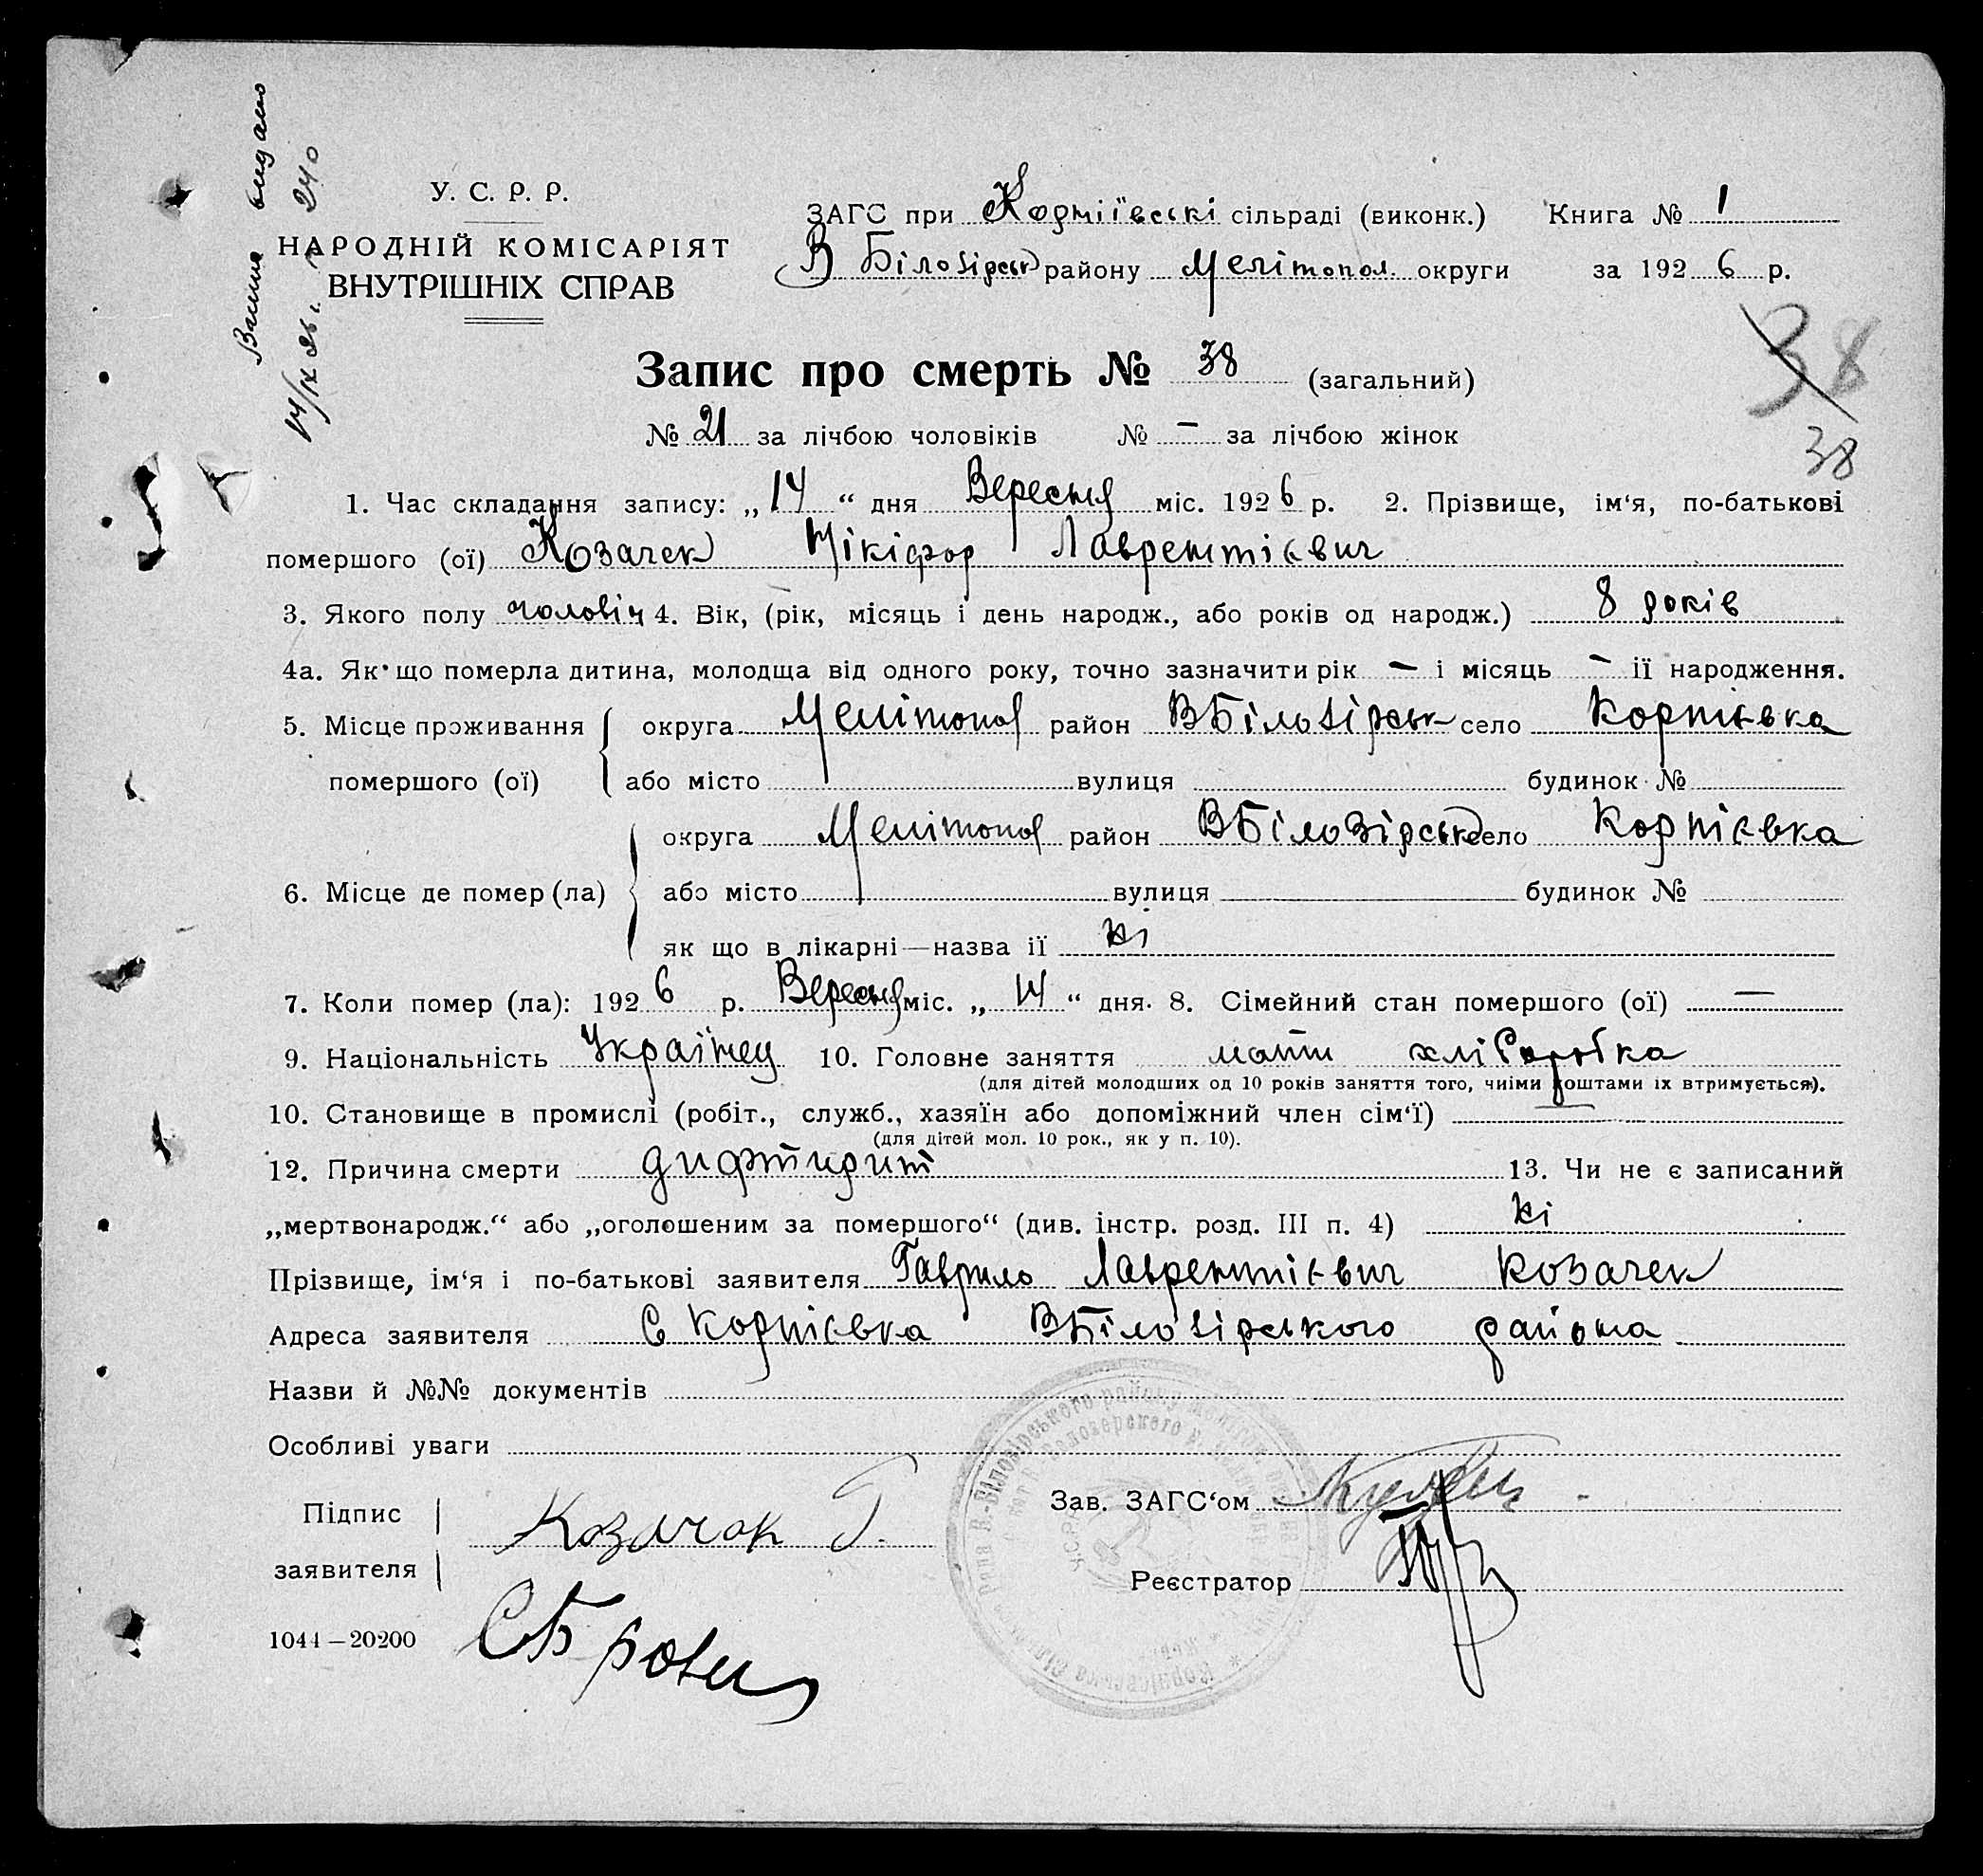 Випис видано
14/IX 26 г. № 240
У. С. Р. Р.
НАРОДНІЙ КОМІСАРІЯТ
ВНУТРІШНІХ СПРАВ
ЗАГС при Корніївські сільраді (виконк.) Книга № 1
В Білозірськ району Мелітопол. округи за 1926 р.
38
38
Запис про смерть № 38 (загальний)
№ 21 за лічбою чоловіків № – за лічбою жінок
1. Час складання запису: „14“ дня Вересня міс. 1926 р. 2. Прізвище, ім‘я, по-батькові
помершого (ої) Козачек Нікіфор Лаврентієвич
3. Якого полу чоловіч 4. Вік, (рік, місяць і день народж., або років од народж.) 8 років
4а. Як що померла дитина, молодща від одного року, точно зазначити рік – і місяць – її народження.
5. Місце проживання помершого (ої) округа Мелітопол район ВБілозірськ село Корнієвка
або місто вулиця будинок №
6. Місце де помер (ла) округа Мелітопол район ВБілозірськ село Корнієвка
або місто вулиця будинок №
як що в лікарні—назва її ні
7. Коли помер (ла): 1926 р. Вересня міс. „14“ дня. 8. Сімейний стан помершого (ої) —
9. Національність Українец 10. Головне заняття мати хліборобка
(для дітей молодших од 10 років заняття того, чиїми коштами їх втримується).
10. Становище в промислі (робіт., служб., хазяїн або допоміжний член сім‘ї) —
(для дітей мол. 10 рок., як у п. 10).
12. Причина смерти дифтирит 13. Чи не є записаний
„мертвонародж.“ або „оголошеним за помершого“ (див. інстр. розд. III п. 4) ні
Прізвище, ім‘я і по-батькові заявителя Гаврило Лаврентієвич Козачек
Адреса заявителя с Корнієвка ВБілозірського района
Назви й №№ документів
Особливі уваги
Підпис заявителя Козачок Г.
Зав. ЗАГС‘ом
Реєстратор
1044—20200